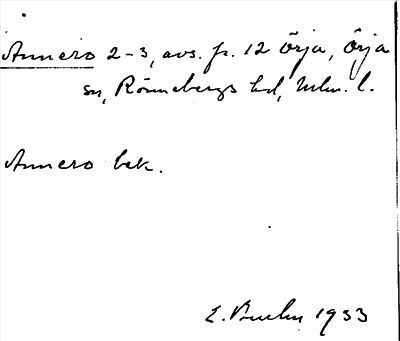 Annero 2-3, avs. fr. 12 Örja, Örja
sn, Rönnebergs hd, Mlm. l.
Annero bek.
E. 1933